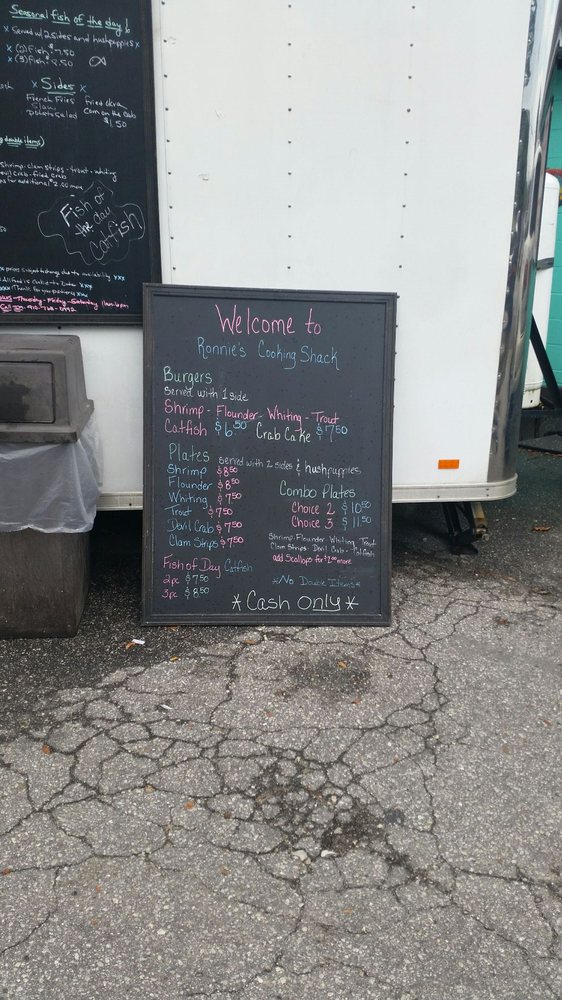 Seasonal fish of the day
x served w/ 2 sides and hushpuppies x
x (2) fish $7.50
x (3) fish $8.50
x Sides x
French Fries
Slaw
Potato Salad
Fried okra
Corn on the Cob
$1.50
double items)
Shrimp - clam strips - trout - whiting
crab - fried crab
for additional $2.00 more
Fish of
the day
Catfish
prices subject to change due to availability xxx
All food is cooked to order xxx
Thursday - Friday - Saturday
Welcome to
Ronnie's Cooking Shack
Burgers
Served with 1 side
Shrimp - Flounder - Whiting - Trout
Catfish $6.50 Crab Cake $7.50
Plates served with 2 sides & hushpuppies
Shrimp $8.50
Flounder $8.50
Whiting $7.50
Trout $7.50
Devil Crab $7.50
Clam Strips $7.50
Combo Plates
Choice 2 $10.50
Choice 3 $11.50
Shrimp - Flounder - Whiting - Trout
Clam Strips - Devil Crab - Catfish
add Scallops for $2.00 more
Fish of Day Catfish
2pc $7.50
3pc $8.50
*No Double Items*
*Cash Only*